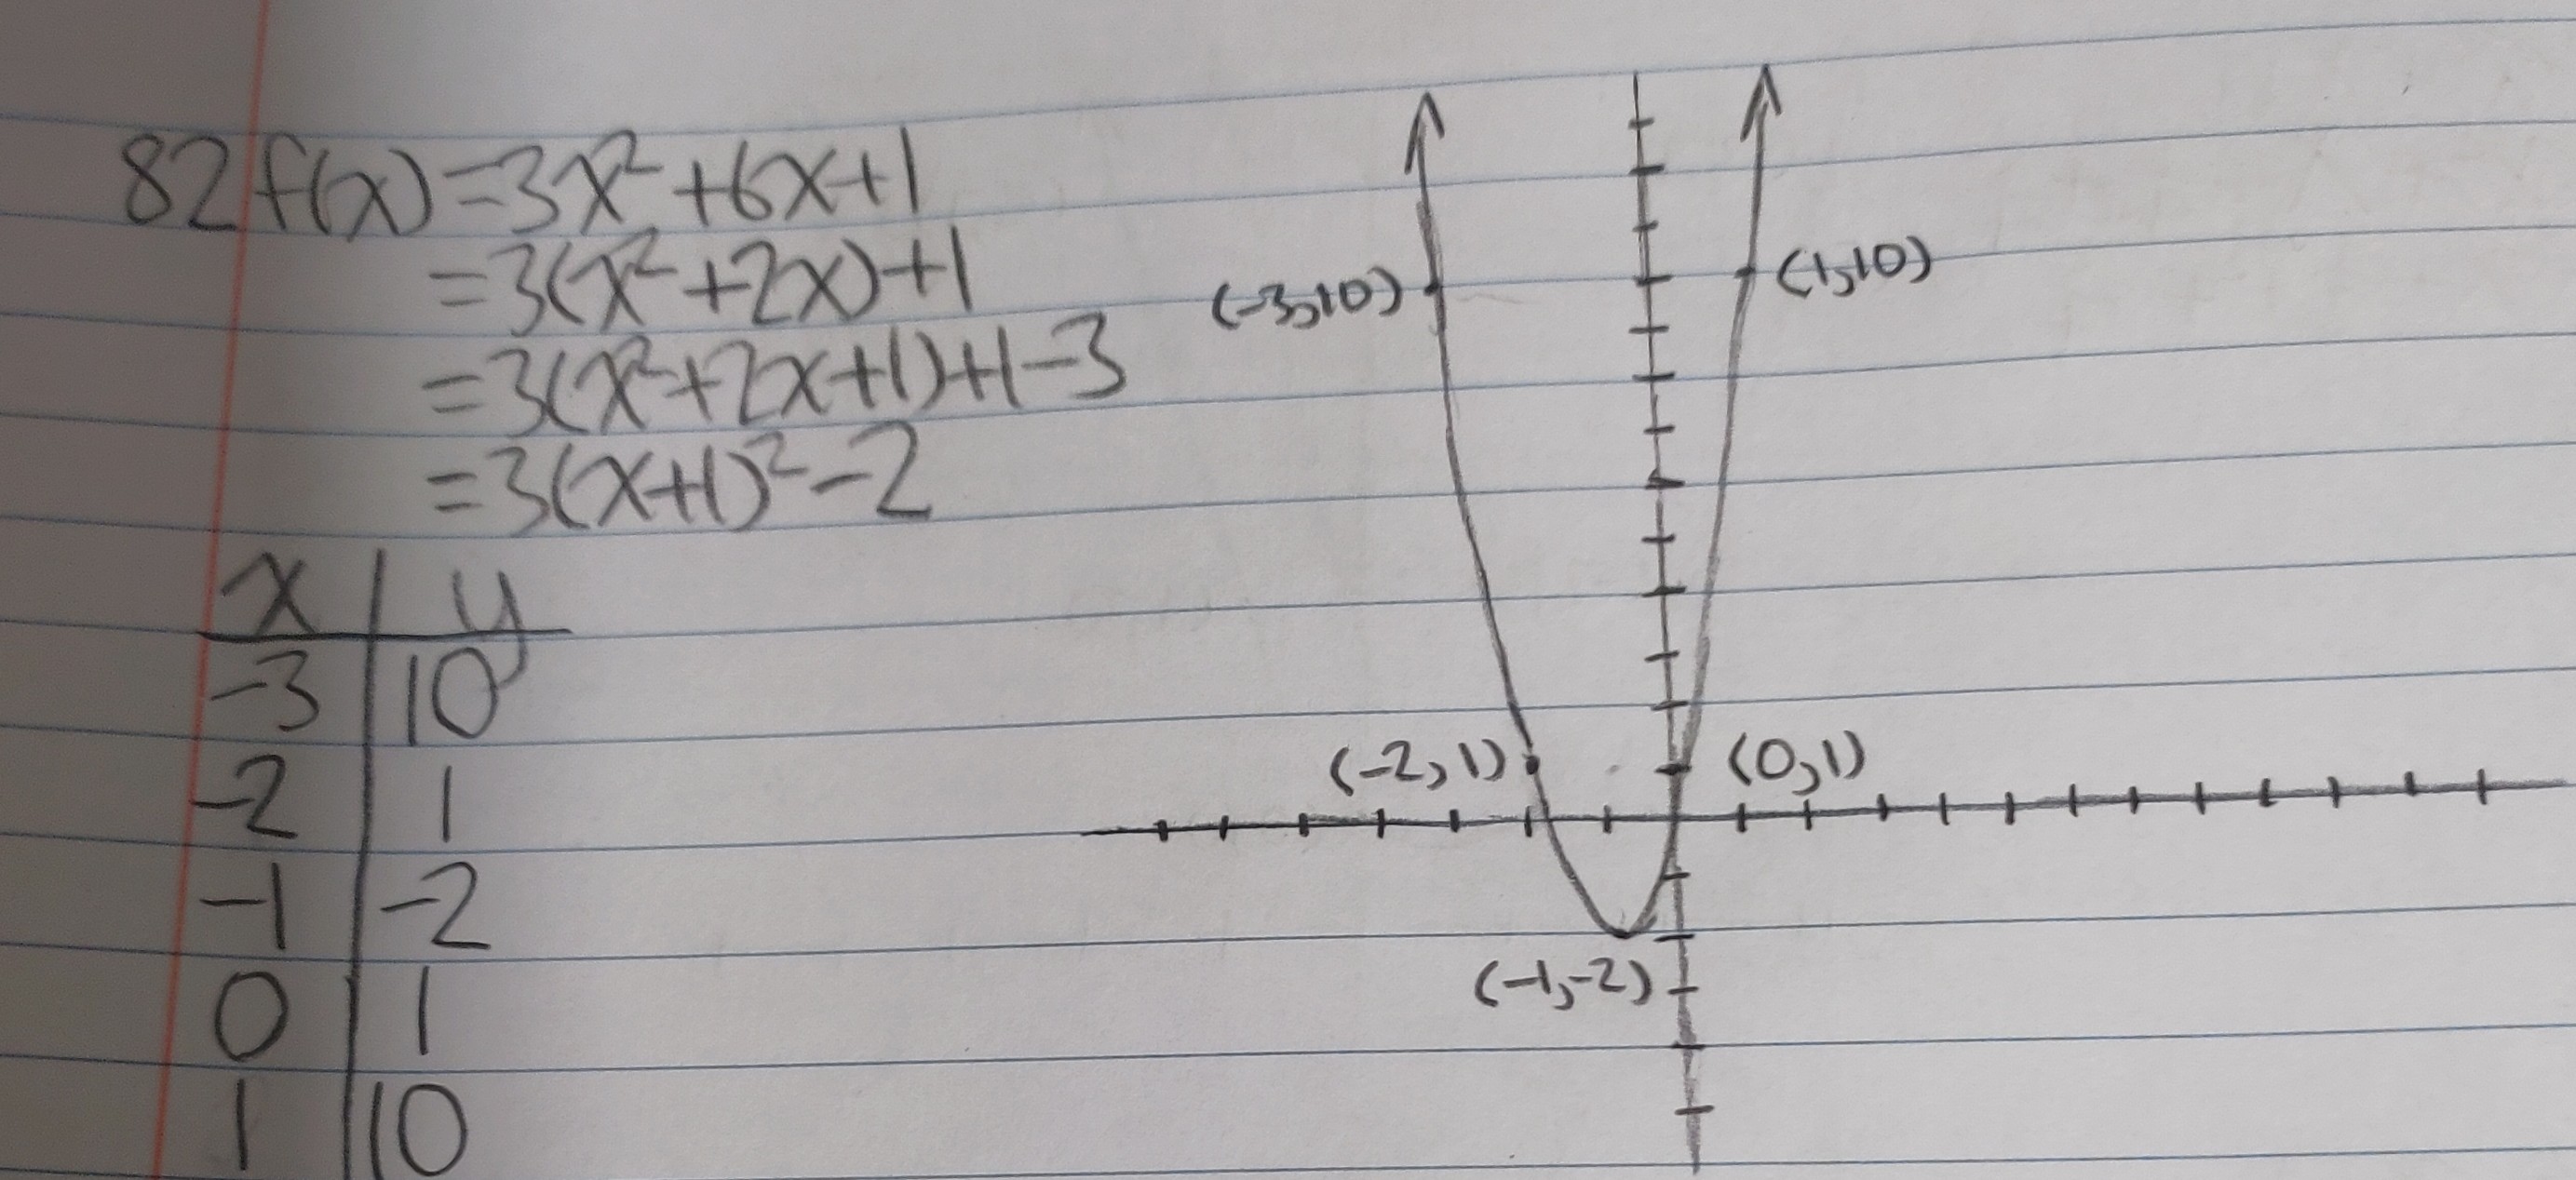 82 f(x)=3x²+6x+1
=3(x²+2x)+1
=3(x²+2x+1)+1-3
=3(x+1)²-2
x | y
-3 | 10
-2 | 1
-1 | -2
0 | 1
1 | 10
(-3,10)
(1,10)
(-2,1)
(0,1)
(-1,-2)